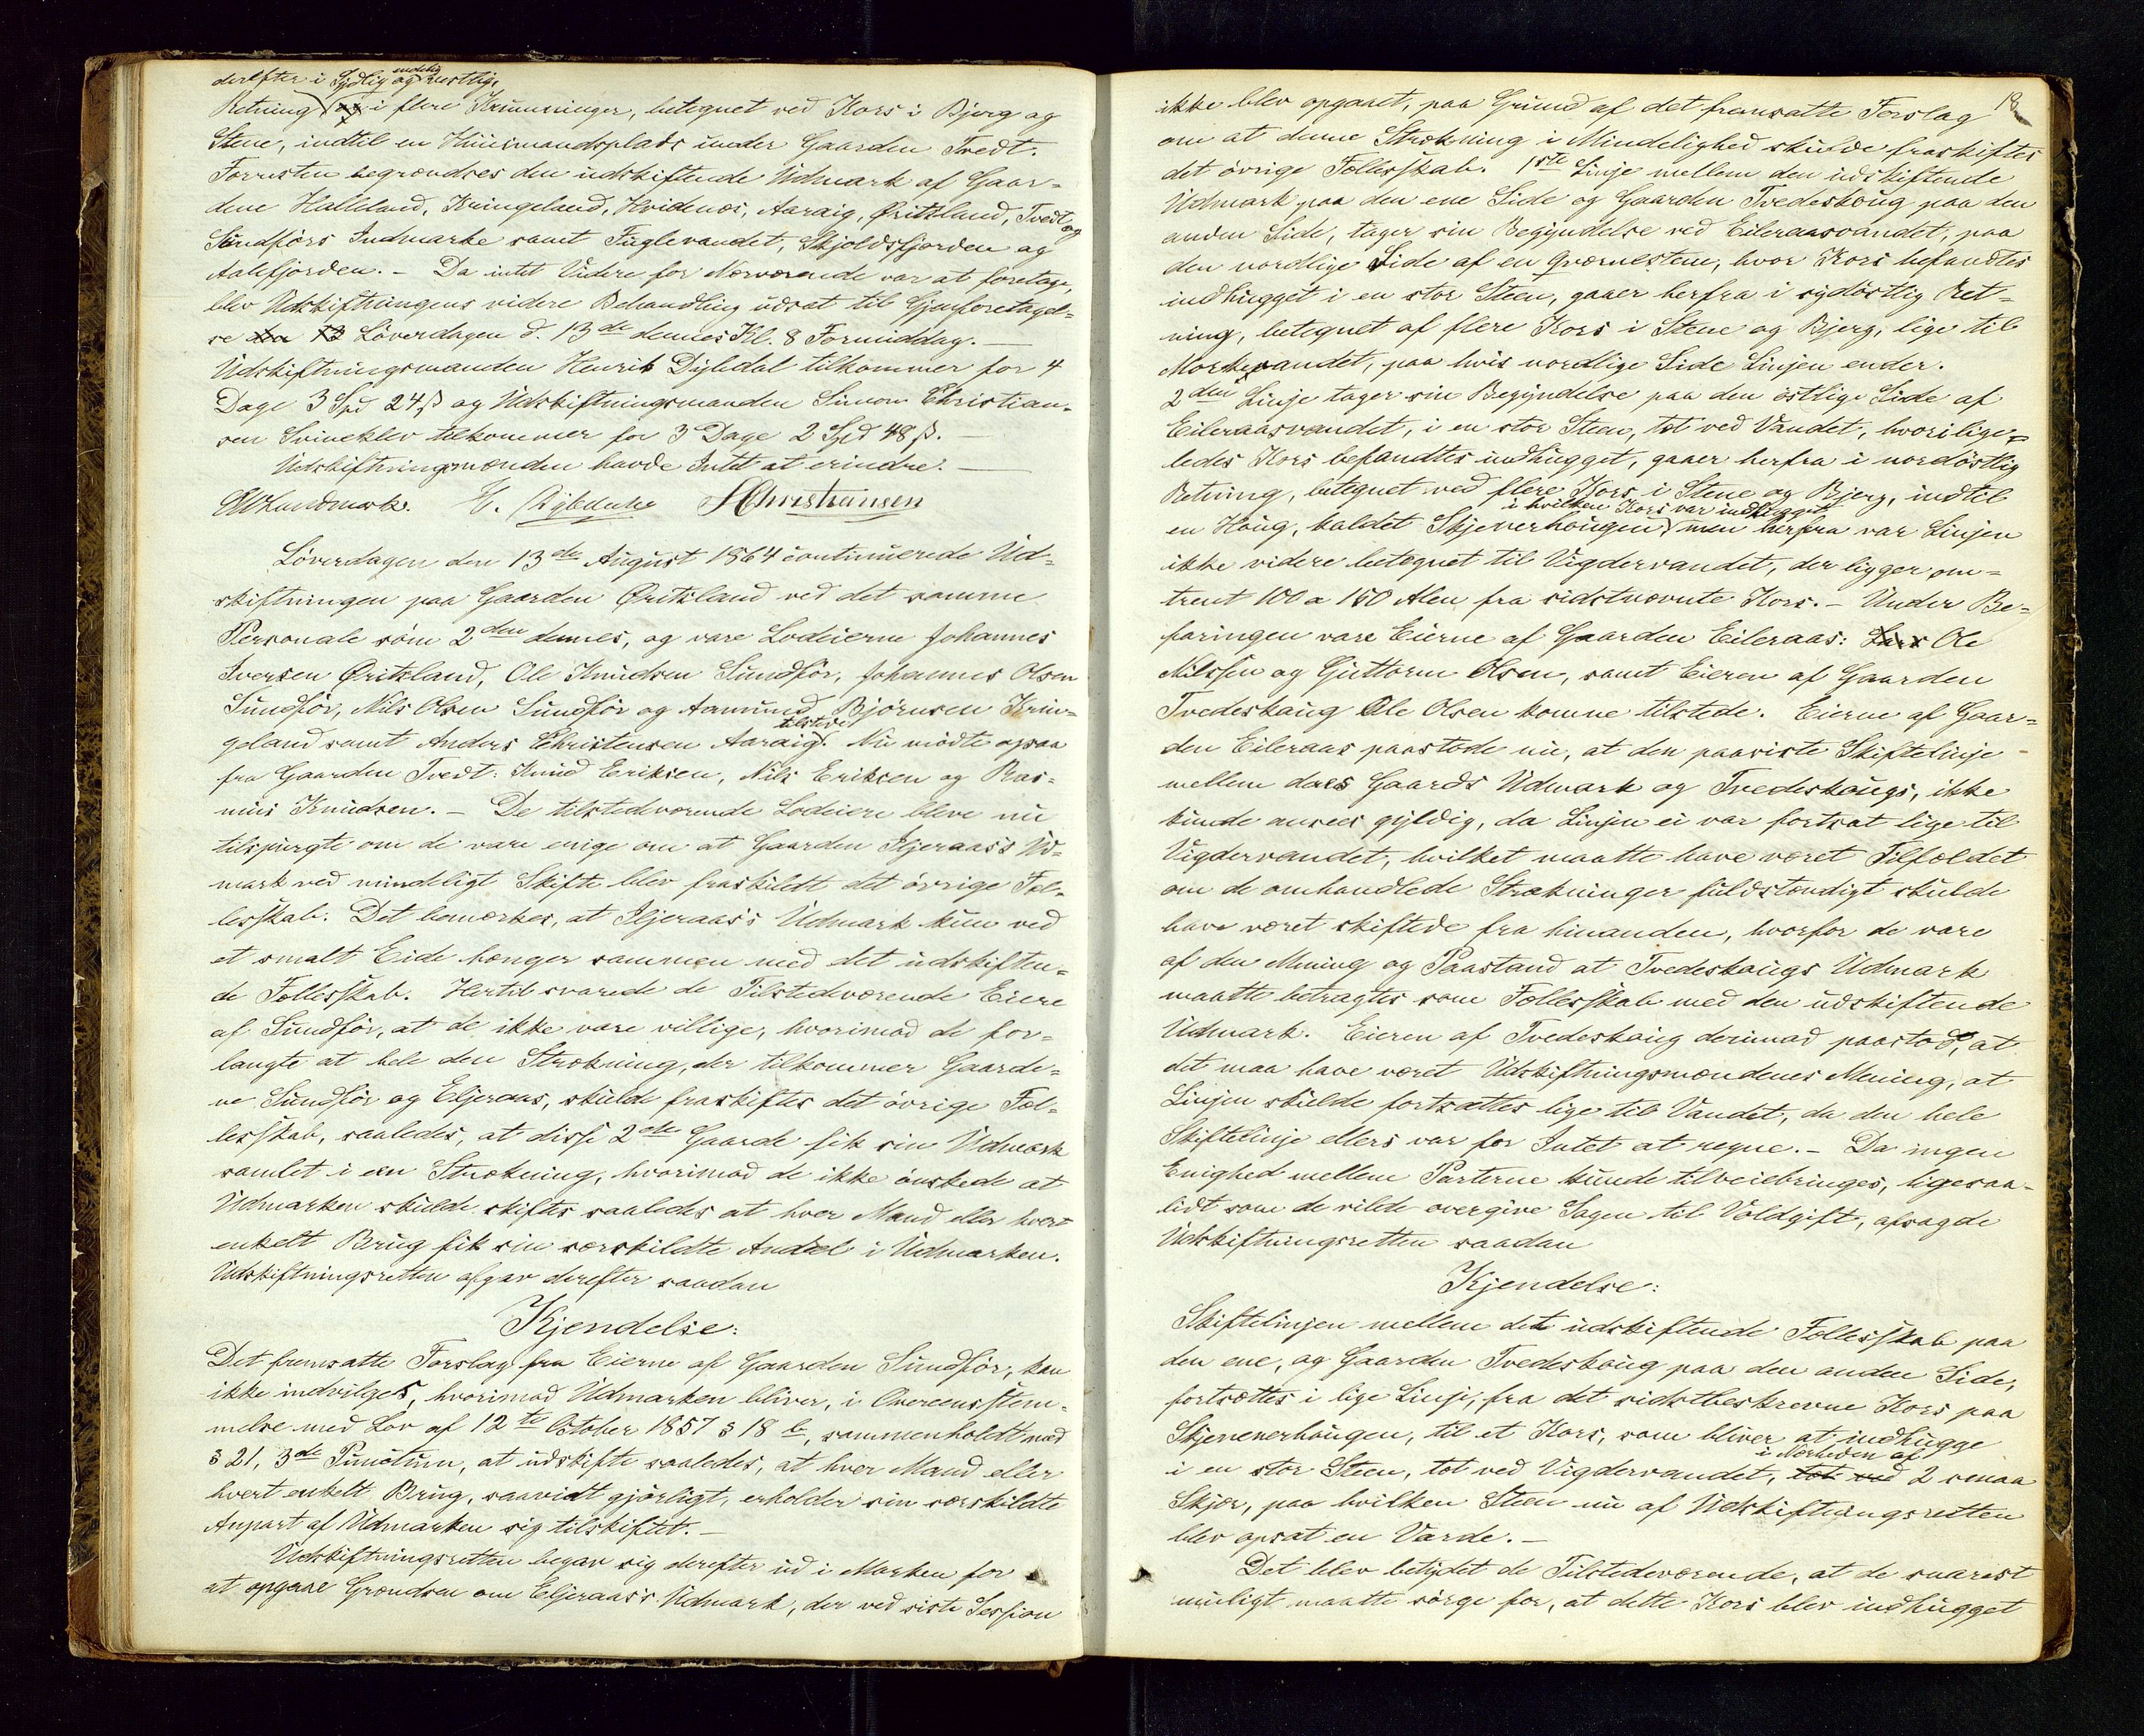 derefter i Sydlig og endelig vestlig
Retning og i flere Krumninger, betegnet ved Kors i Bjerg og
Stene, indtil en Huusmandsplads under Gaarden Tvedt.
Forresten begrændses den udskiftende Udmark af Gaar-
dene Halleland, Kringeland, Hvidenæs, Aaraig, Øritsland, Tvedt og
Sundførs Indmarke samt Fuglevandet, Skjoldsfjorden og
Aalefjorden. – Da intet Videre for Nærværende var at foretage,
blev Udskiftningens videre Behandling udsat til Gjenforetagel-
se den 12 Løverdagen d. 13de dennes Kl. 8 Formiddag. –
Udskiftningsmanden Henrik Dybdal tilkommer for 4
Dage 3 Spd 24 ß og Udskiftningsmanden Simon Christian-
sen Svinekler tilkommer for 3 Dage 2 Spd 48 ß. –
Udskiftningsmændene havde Intet at erindre. –
Landmark. H. Dybdahl S Christiansen
Løverdagen den 13de August 1864 continuerede Ud-
skiftningen paa Gaarden Øritsland ved det samme
Personale som 2den dennes, og vare Lodeierne Johannes
Iversen Øritsland, Ole Knudsen Sundför, Johannes Olsen
Sundför, Nils Olsen Sundför og Aamund Björnsen Krin-
geland samt Anders Christensen Aaraig tilstede. Nu mödte ogsaa
fra Gaarden Tvedt: Knud Eriksen, Nils Eriksen og Ras-
mus Knudsen. – De tilstedværende Lodeiere bleve nu
tilspurgte om de vare enige om at Gaarden Iljeraas's Ud-
mark ved mindeligt Skifte blev fraskildt det övrige Fæl-
lesskab. Det bemærkes, at Iljeraas's Udmark kun ved
et smalt Eide hænger sammen med det udskiften-
de Fællesskab. Hertil svarede de Tilstedeværende Eiere
af Sundför, at de ikke vare villige, hvorimod de for-
langte at hele den Strækning, der tilkommer Gaarde-
ne Sundför og Eljeraas, skulde fraskiftes det övrige Fæl-
lesskab, saaledes, at disse 2de Gaarde fik sin Udmark
samlet i een Strækning, hvorimod de ikke önskede at
Udmarken skulde skiftes saaledes at hver Mand eller hvert
enkelt Brug fik sin særskildte Andeel i Udmarken.
Udskiftningsretten afgav derefter saadan
Kjendelse:
Det fremsatte Forslag fra Eierne af Gaarden Sundför, kan
ikke indvilges, hvorimod Udmarken bliver, i Overeensstem-
melse med Lov af 12te October 1857 § 18 b, sammenholdt med
§ 21, 3de Punctum, at udskifte saaledes, at hver Mand eller
hvert enkelt Brug, saavidt gjørligt, erholder sin særskildte
Anpart af Udmarken sig tilskiftet. –
Udskiftningsretten begav sig derefter ud i Marken for
at opgaae Grændsen om Eljeraas's Udmark, der ved siste Session
18
ikke blev opgaaet, paa Grund af det fremsatte Forslag
om at denne Strækning i Mindelighed skulde fraskiftes
det övrige Fællesskab. 1ste Linje mellem den udskiftende
Udmark paa den ene Side og Gaarden Tvedeskoug paa den
anden Side, tager sin Begyndelse ved Eileraasvandet, paa
den nordlige Side af en Qværnestene, hvor Kors befandtes
indhugget i en stor Steen, gaaer herfra i sydöstlig Ret-
ning, betegnet af flere Kors i Stene og Bjerg, lige til
Morkevandet, paa hvis nordlige Side Linjen ender.
2den Linje tager sin Begyndelse paa den östlige Side af
Eileraasvandet, i en stor Steen, tæt ved Vandet, hvori lige-
ledes Kors befandtes indhugget, gaaer herfra i nordöstlig
Retning, betegnet ved flere Kors i Stene og Bjerg, indtil
en Houg, kaldet Skjeverhougen, i hvilken Kors var indhugget men herfra var Linjen
ikke videre betegnet til Vigdervandet, der ligger om-
trent 100 a 150 Alen fra sidstnævnte Kors. – Under Be-
faringen vare Eierne af Gaarden Eileraas: Lars Ole
Nilssen og Guttorm Olsen, samt Eieren af Gaarden
Tvedeskoug Ole Olsen komne tilstede. Eierne af Gaar-
den Eileraas paastode nu, at den paaviste Skiftelinje
mellem deres Gaards Udmark og Tvedeskougs, ikke
kunde ansees gyldig, da Linjen ei var fortsat lige til
Vigdervandet, hvilket maatte have været Tilfældet
om de omhandlede Strækninger fuldstændigt skulde
have været skiftede fra hinanden, hvorfor de vare
af den Mening og Paastand at Tvedeskougs Udmark
maatte betragtes som Fællesskab med den udskiftende
Udmark. Eieren af Tvedeskoug derimod paastod, at
det maa have været Udskiftningsmændenes Mening, at
Linjen skulde fortsættes lige til Vandet, da den hele
Skiftelinje ellers var for Intet at regne. – Da ingen
Enighed mellem Parterne kunde tilveiebringes, ligesaa-
lidt som de vilde overgive Sagen til Voldgift, afsagde
Udskiftningsretten saadan
Kjendelse:
Skiftelinjen mellem det udskiftende Fællesskab paa
den ene, og Gaarden Tvedeskoug paa den anden Side,
fortsættes i lige Linje, fra det sidstbeskrevne Kors paa
Skjeverhougen, til et Kors, som bliver at indhugge
i en stor Steen, tæt ved Vigdervandet, tæt ved i Nærheden af 2 smaa
Skjær, paa hvilken Steen nu af Udskiftningsretten
blev opsat en Varde. –
Det blev betydet de Tilstedeværende, at de snarest
muligt maatte sörge for, at dette Kors blev indhugget